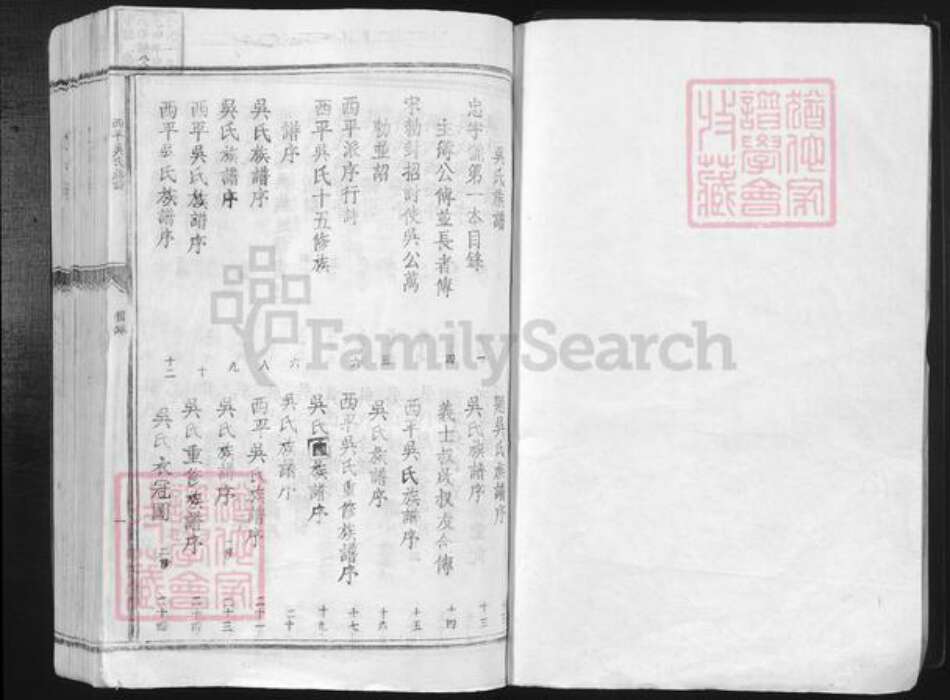 吳氏族譜
忠字號第一本目錄
主簿公傳並長者傳 一
宋勅封招討使吳公萬 四
勅並詔 三
西平派序行詩 六
西平吳氏十五修族
譜序 六
吳氏族譜序 八
吳氏族譜序 九
西平吳氏族譜序 十
西平吳氏族譜序 十二
吳氏族譜序
吳氏族譜序 十三
義士叔茂叔友合傳 十四
西平吳氏族譜序 十五
吳氏族譜序 十六
西平吳氏重修族譜序 十七
吳氏族譜序 十九
吳氏族譜序 二十
西平吳氏族譜序 二十一
吳氏族譜序 二十三
吳氏重修族譜序 二十四
吳氏衣冠圖
西平吳氏族譜
目錄
一
猶他家
譜學會
收藏
猶他家
譜學會
收藏
FamilySearch